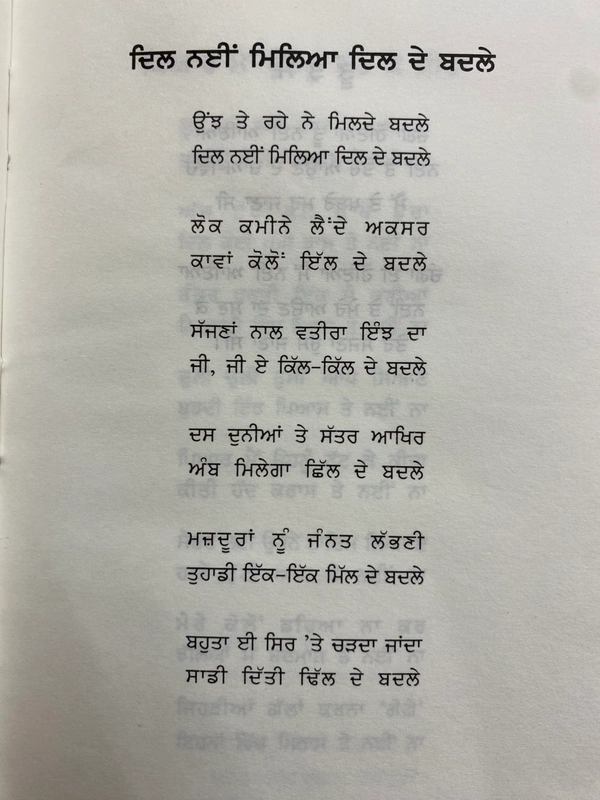 ਦਿਲ ਨਈਂ ਮਿਲਿਆ ਦਿਲ ਦੇ ਬਦਲੇ
ਉਂਝ ਤੇ ਰਹੇ ਨੇ ਮਿਲਦੇ ਬਦਲੇ
ਦਿਲ ਨਈਂ ਮਿਲਿਆ ਦਿਲ ਦੇ ਬਦਲੇ
ਲੋਕ ਕਮੀਨੇ ਲੈਂਦੇ ਅਕਸਰ
ਕਾਵਾਂ ਕੋਲੋਂ ਇੱਲ ਦੇ ਬਦਲੇ
ਸੱਜਣਾਂ ਨਾਲ ਵਤੀਰਾ ਇੰਝ ਦਾ
ਜੀ, ਜੀ ਏ ਕਿੱਲ-ਕਿੱਲ ਦੇ ਬਦਲੇ
ਦਸ ਦੁਨੀਆਂ ਤੇ ਸੱਤਰ ਆਖਿਰ
ਅੰਬ ਮਿਲੇਗਾ ਛਿੱਲ ਦੇ ਬਦਲੇ
ਮਜ਼ਦੂਰਾਂ ਨੂੰ ਜੰਨਤ ਲੱਭਣੀ
ਤੁਹਾਡੀ ਇੱਕ-ਇੱਕ ਮਿੱਲ ਦੇ ਬਦਲੇ
ਬਹੁਤਾ ਈ ਸਿਰ 'ਤੇ ਚੜਦਾ ਜਾਂਦਾ
ਸਾਡੀ ਦਿੱਤੀ ਢਿੱਲ ਦੇ ਬਦਲੇ